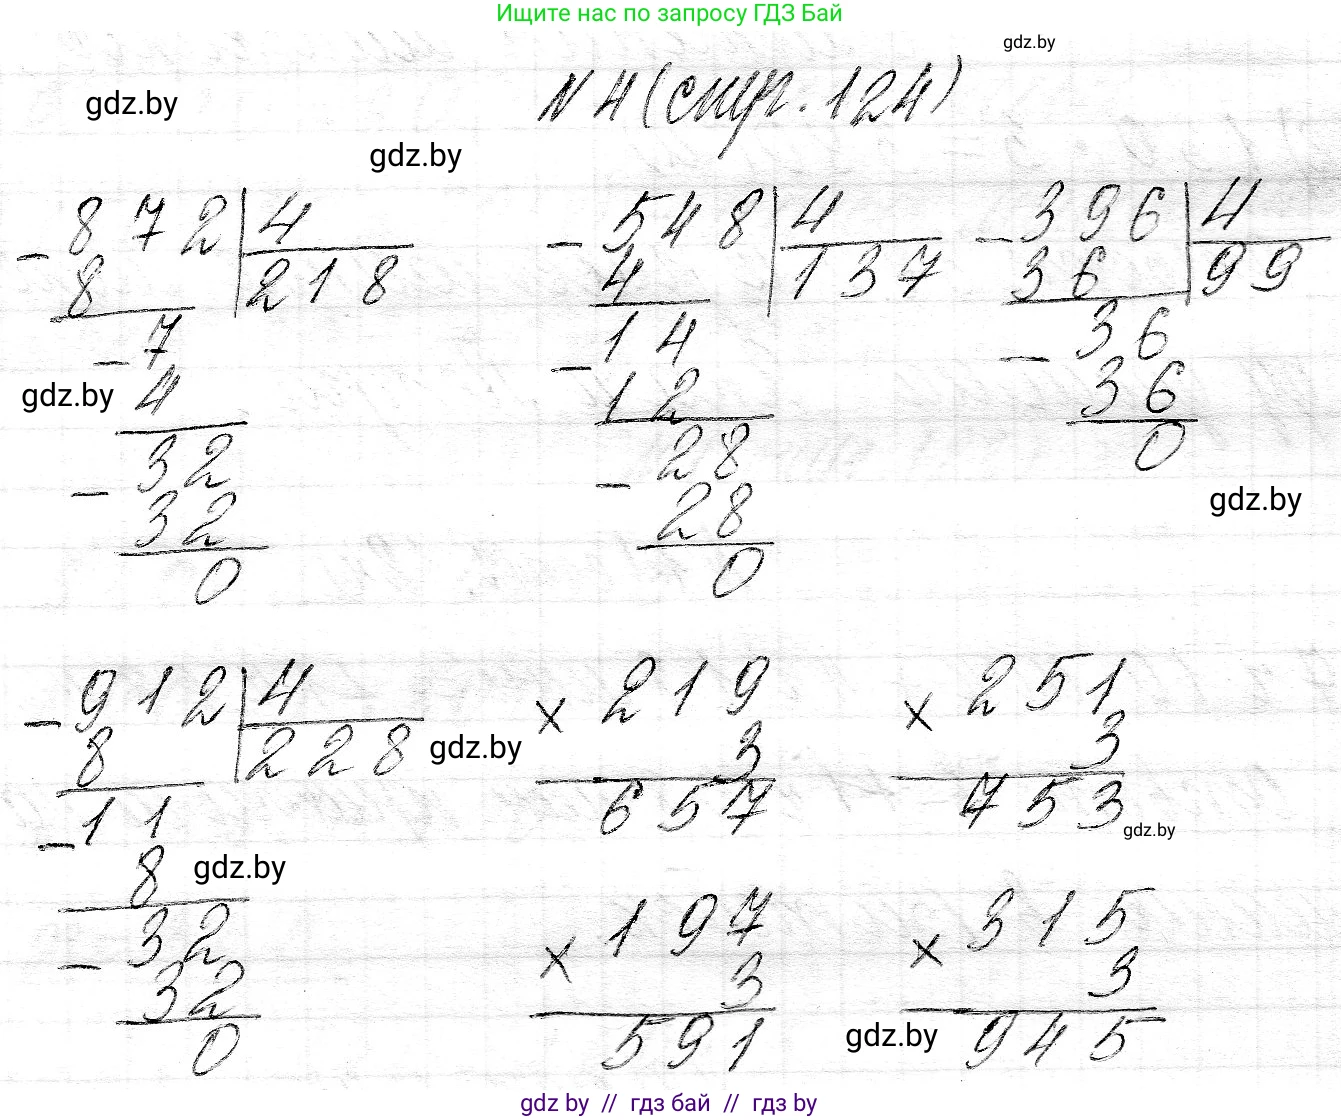 Ищите нас по запросу ГДЗ Бай
gdz.by
N 4 (стр. 124)
gdz.by
gdz.by
- 872 | 4
8 218
- 7
4
- 32
32
0
gdz.by
- 548 | 4
4 137
- 14
12
- 28
28
0
- 396 | 4
36 99
- 36
36
0
gdz.by
- 912 | 4
8 228
- 11
8
- 32
32
0
gdz.by
gdz.by
× 219
3
657
× 251
3
753
gdz.by
× 197
3
591
× 315
3
945
gdz.by
gdz by // гдз бай // гдз by